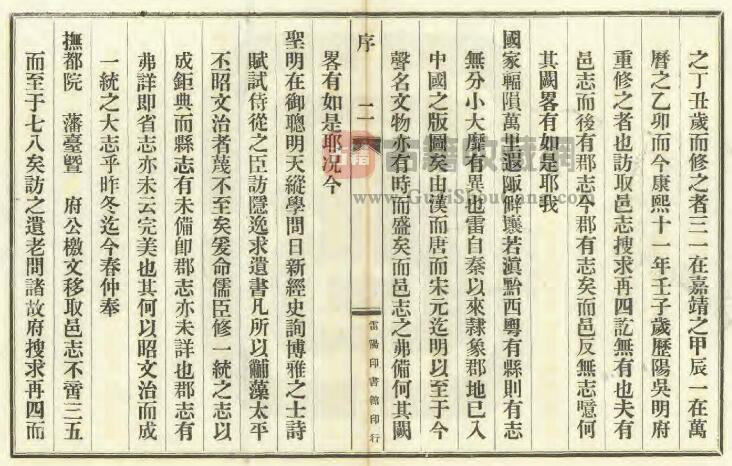 之丁丑歲而修之者三一在嘉靖之甲辰一在萬
曆之乙卯而今康熙十一年壬子歲歷陽吳明府
重修之者也訪取邑志搜求再四訖無有也夫有
邑志而後有郡志今郡有志矣而邑反無志噫何
其闕畧有如是耶我
國家輻隕萬里遐陬僻壤若滇黔西粵有縣則有志
無分小大靡有異也雷自秦以來隸象郡地已入
中國之版圖矣由漢而唐而宋元迄明以至于今
聲名文物亦有時而盛矣而邑志之弗備何其闕
序 二
雷陽印書館印行
畧有如是耶況今
聖明在御聰明天縱學問日新經史詢博雅之士詩
賦試侍從之臣訪隱逸求遺書凡所以黼藻太平
丕昭文治者蔑不至矣爰命儒臣修一統之志以
成鉅典而縣志有未備卽郡志亦未詳也郡志有
弗詳即省志亦未云完美也其何以昭文治而成
一統之大志乎昨冬迄今春仲奉
撫都院 藩臺曁 府公檄文移取邑志不啻三五
而至于七八矣訪之遺老問諸故府搜求再四而
古籍收藏網
www.GujiShoucang.com